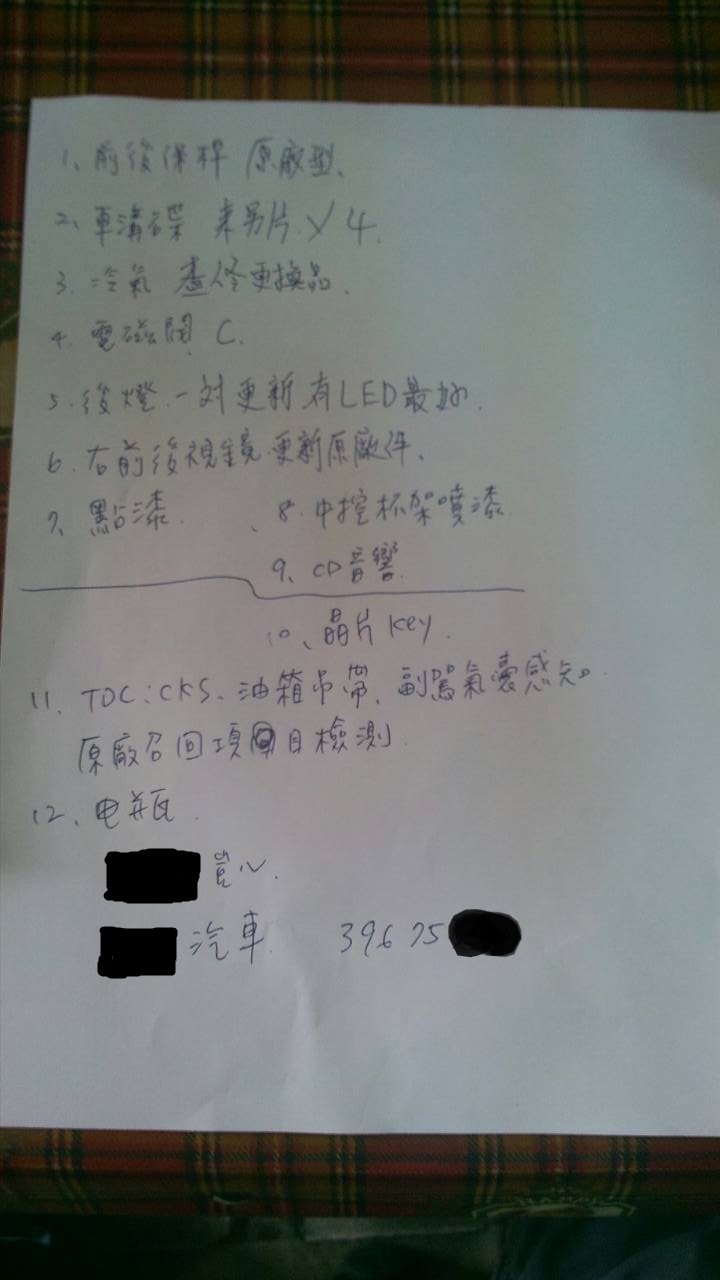 1、前後保桿 原廠型、
2、車溝碟 來另片 X 4.
3、冷氣 盡修更換品.
4、電磁閥 C.
5、後燈一对更新有LED最好.
6、右前後視鏡更新原廠件、
7、點漆. 、8、中控杯架噴漆
9、CD音響.
10、晶片Key.
11、TDC:CKS、油箱吊帶、副駕氣囊感知。
原廠召回項目檢測.
12、电瓶.
汽車 39675